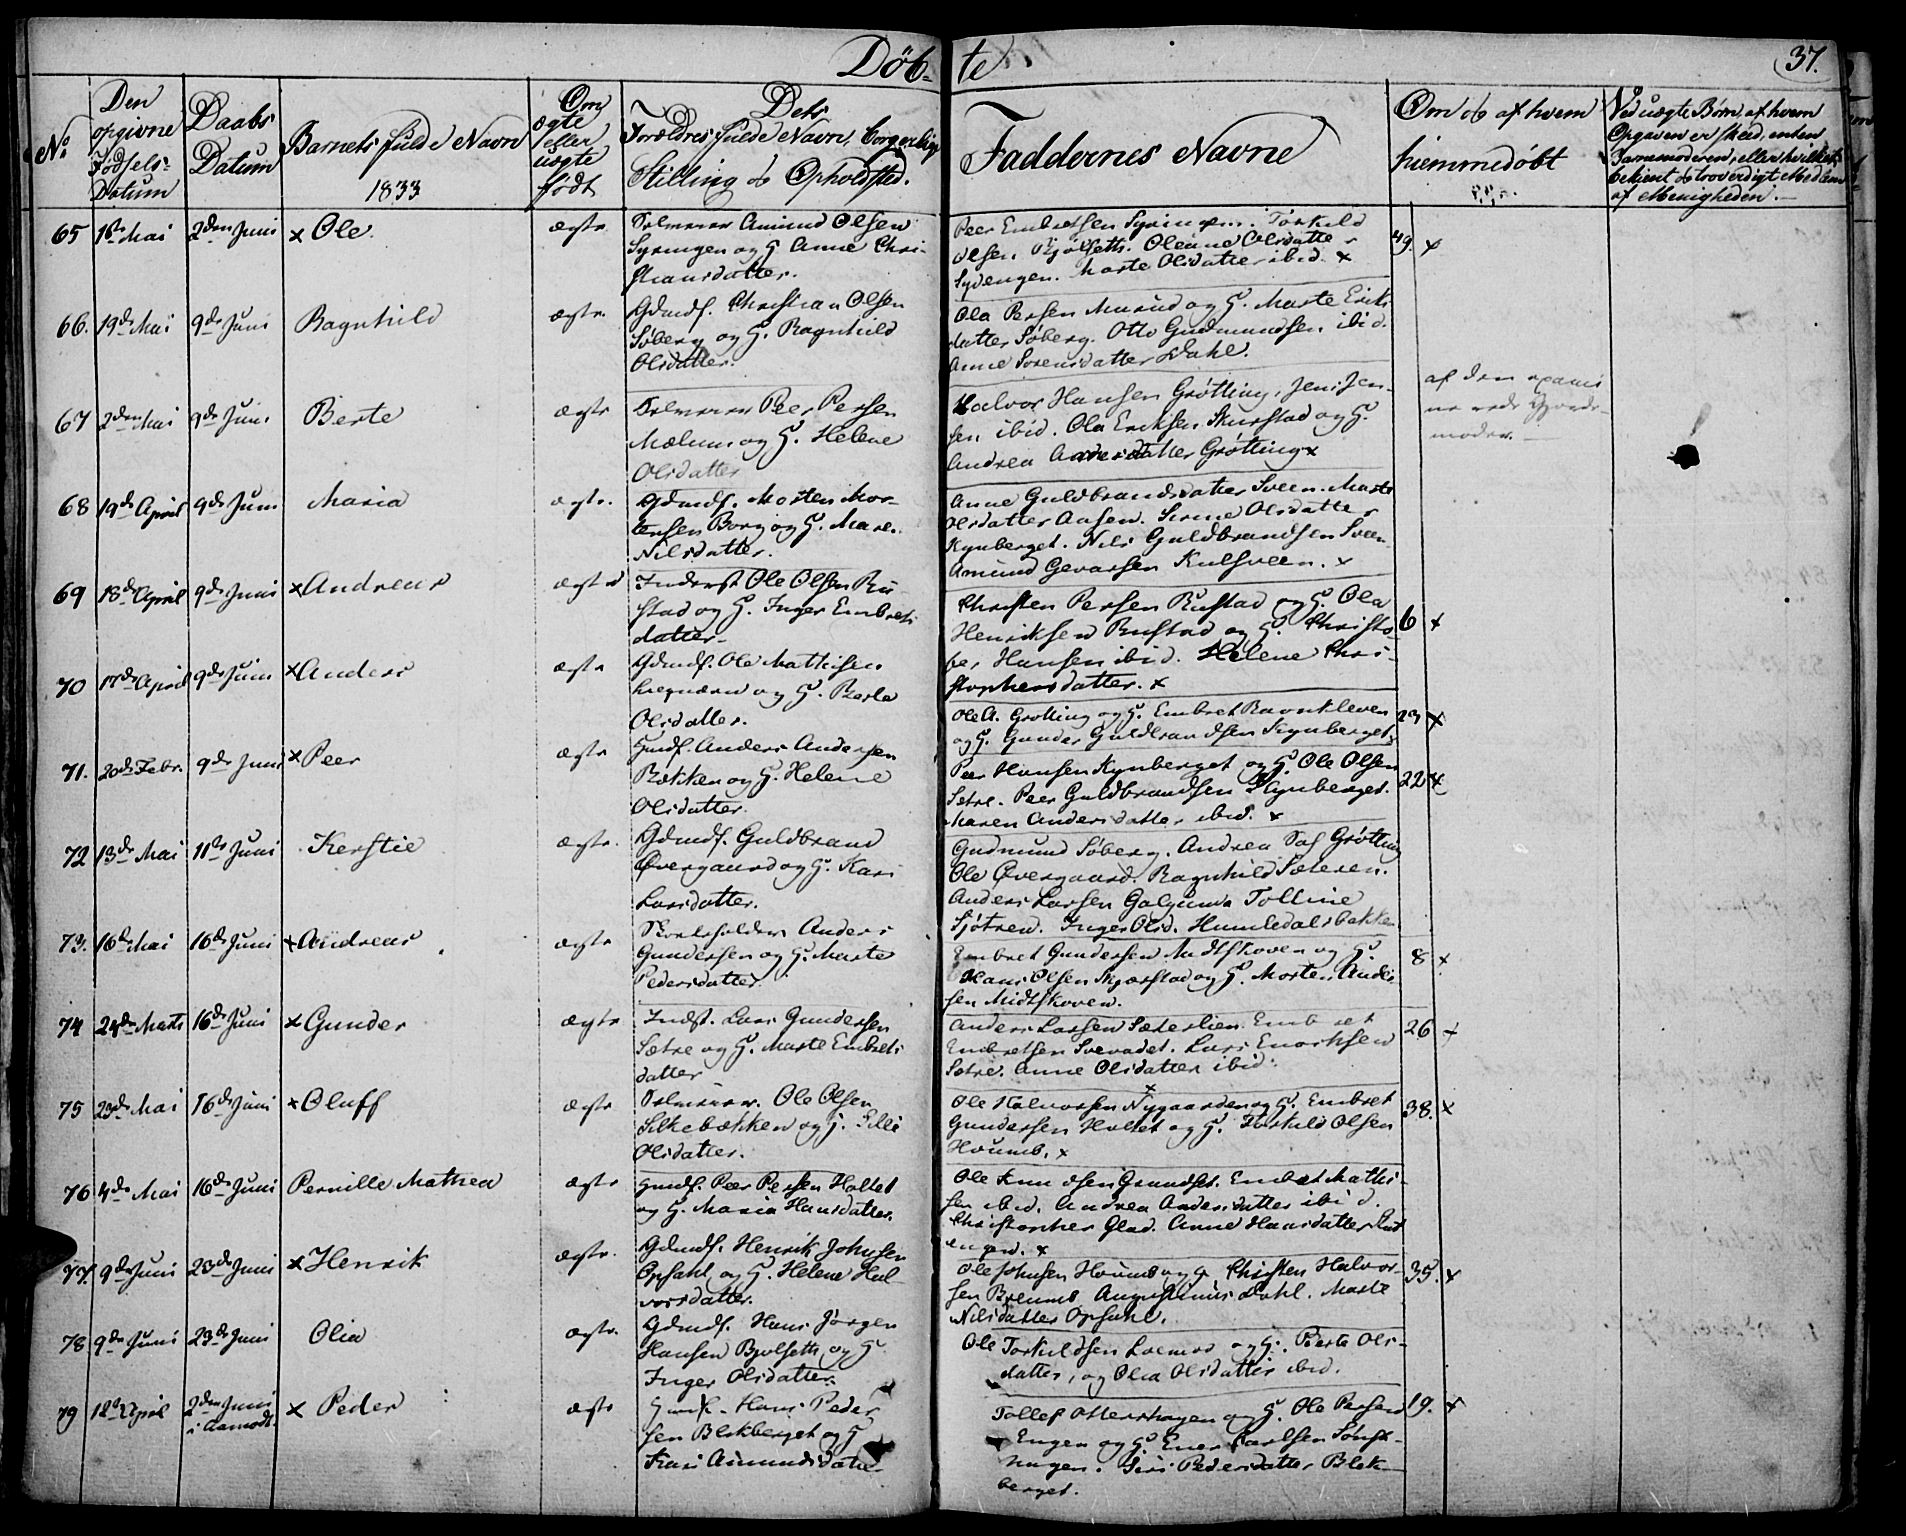 Døb-
te
37.
No:
Den
opgivne
Fødsels-
Datum
Daabs
Datum
Barnets fulde Navn
1833
Om
ægte
eller
uægte
født
Dets
Forældres fulde Navn, borgerlige
Stilling og Opholdsted.
Faddernes Navne
Om og af hvem
hiemmedøbt
Ved uægte Børn, af hvem
Opgaven er skeed, enten
Barnemoderen, eller hvilket
bekient og troværdigt Medlem
af Menigheden.
65 1ste Mai 2den Juni x Ole ægte
Selveier Amund Olsen
Syringen og H. Anne Chri-
stiansdatter.
Peer Embretsen Syringen. Torkild
Olsen Bjølseth. Oleane Olsdatter
Sydengen. Marte Olsdatter ibid. x
49. x
66. 19de Mai 9de Juni Ragnhild ægte.
Gdmd. Christian Olsen
Søberg og H. Ragnhild
Olsdatter.
Ola Persen Murud og H. Marte Erik-
datter Søberg. Otto Gudmundsen ibid.
Anne Sorensdatter Dahl.
67 2den Mai 9de Juni Berte ægte
Selveier Peer Persen
Mælum og H. Helene
Olsdatter
Halvor Hansen Grøtting, Jens Jen-
sen ibid. Ola Eriksen Skurstad og H.
Andrea Andersdatter Grøtting x
af den exami
ne rede Gjorde-
moder.
68 19de April 9de Juni Maria ægte.
Gdmd. Morten Mor-
tensen Borg og H. Mari
Nilsdatter.
Anne Guldbrandsdatter Sveen. Marte
Olsdatter Aasen. Sirene Olsdatter
Kynberget. Nils Guldbrandsen Sveen
Amund Gevarsen Kulsveen. x
69 18de April 9de Juni x Andreas ægte
Inderst Ole Olsen Ru
stad og H. Inger Embrets
datter
Christen Persen Rustad og H. Ola
Henriksen Rustad og H. Christo-
fer Hansen ibid. Helene Chri-
stophersdatter. x
6 x
70 17de April 9de Juni x Anders ægte
Gdmd. Ole Mathisen
og H. Berte
Olsdatter.
Ole A. Grøtting og H. Embret Ravnkleven
og H. Gunder Guldbrandsen Kynberget x
23 x
71. 20de Febr. 9de Juni x Peer ægte
Hmd. Anders Andersen
Bækken og H. Helene
Olsdatter.
Peer Hansen Kynberget og H. Ole Olsen
Sætre. Peer Guldbrandsen Kynberget.
Karen Andersdatter ibid. x
22 x
72 13de Mai 11te Juni Kerstie ægte.
Gdmd. Guldbrand
Øvergaard og H. Kari
Larsdatter.
Gudmund Søberg. Andrea Grøtting
Ole Øvergaard. Ragnhild Sæteren.
Anders Larsen Tolline
Sjøtren. Inger Olsd. Humledalsbakken
73. 16de Mai 16de Juni x Andreas ægte
Skoleholder Anders
Gundersen og H. Marte
Pedersdatter.
Embret Gundersen Midtskoven og H.
Hans Olsen Skjærstad og H. Morten Ander
sen Midtskoven.
8 x
74 24de Marts 16de Juni x Gunder ægte
Indst. Lars Gundersen
Sætre og H. Marte Embrets
datter
Anders Larsen Sæterlien. Embret
Embretsen Lars Enerksen
Sætre. Anne Olsdatter ibid.
x
26 x
75 23de Mai 16de Juni x Oluff ægte
Selveier. Ole Olsen
Silkebækken og H. Silli
Olsdatter.
Ole Halvorsen Nygaarden og H. Embret
Gundersen Holtet og H. Torkild Olsen
Houmb. x
38. x
76 4de Mai 16de Juni Pernille Mathea ægte
Hmd. Peer Persen Holtet
og H. Maria Hansdatter.
Ole Knudsen Grundset. Embret Mathi-
sen ibid. Andrea Andersdatter ibid.
Christopher Glad. Anne Hansdatter
engen. x
77. 9de Juni 23de Juni x Henrik ægte.
Gdmd. Henrik Johnsen
Opsahl og H. Helene Hal-
vorsdatter.
Ole Johnsen Houmb og H. Christen Halvor-
sen Augustinus Dahl. Marte
Nilsdatter Opsahl.
35. x
78 9de Juni 23de Juni Olia ægte.
Gdmd. Hans Jørgen
Hansen Bjølseth og H
Inger Olsdatter.
Ole Torkildsen Loemoe og H. Berte Ols-
datter, og Olea Olsdatter ibid.
79 12te April 2den Juni
i Aamodt x Peder ægte
Hmd. Hans Peder
sen Blekberget og H
Kari Amundsdatter
Tollef Ottershagen og H. Ole Persen
Engen og H. Ener Karlsen
hagen. Siri Pedersdatter Blek-
berget.
19. x